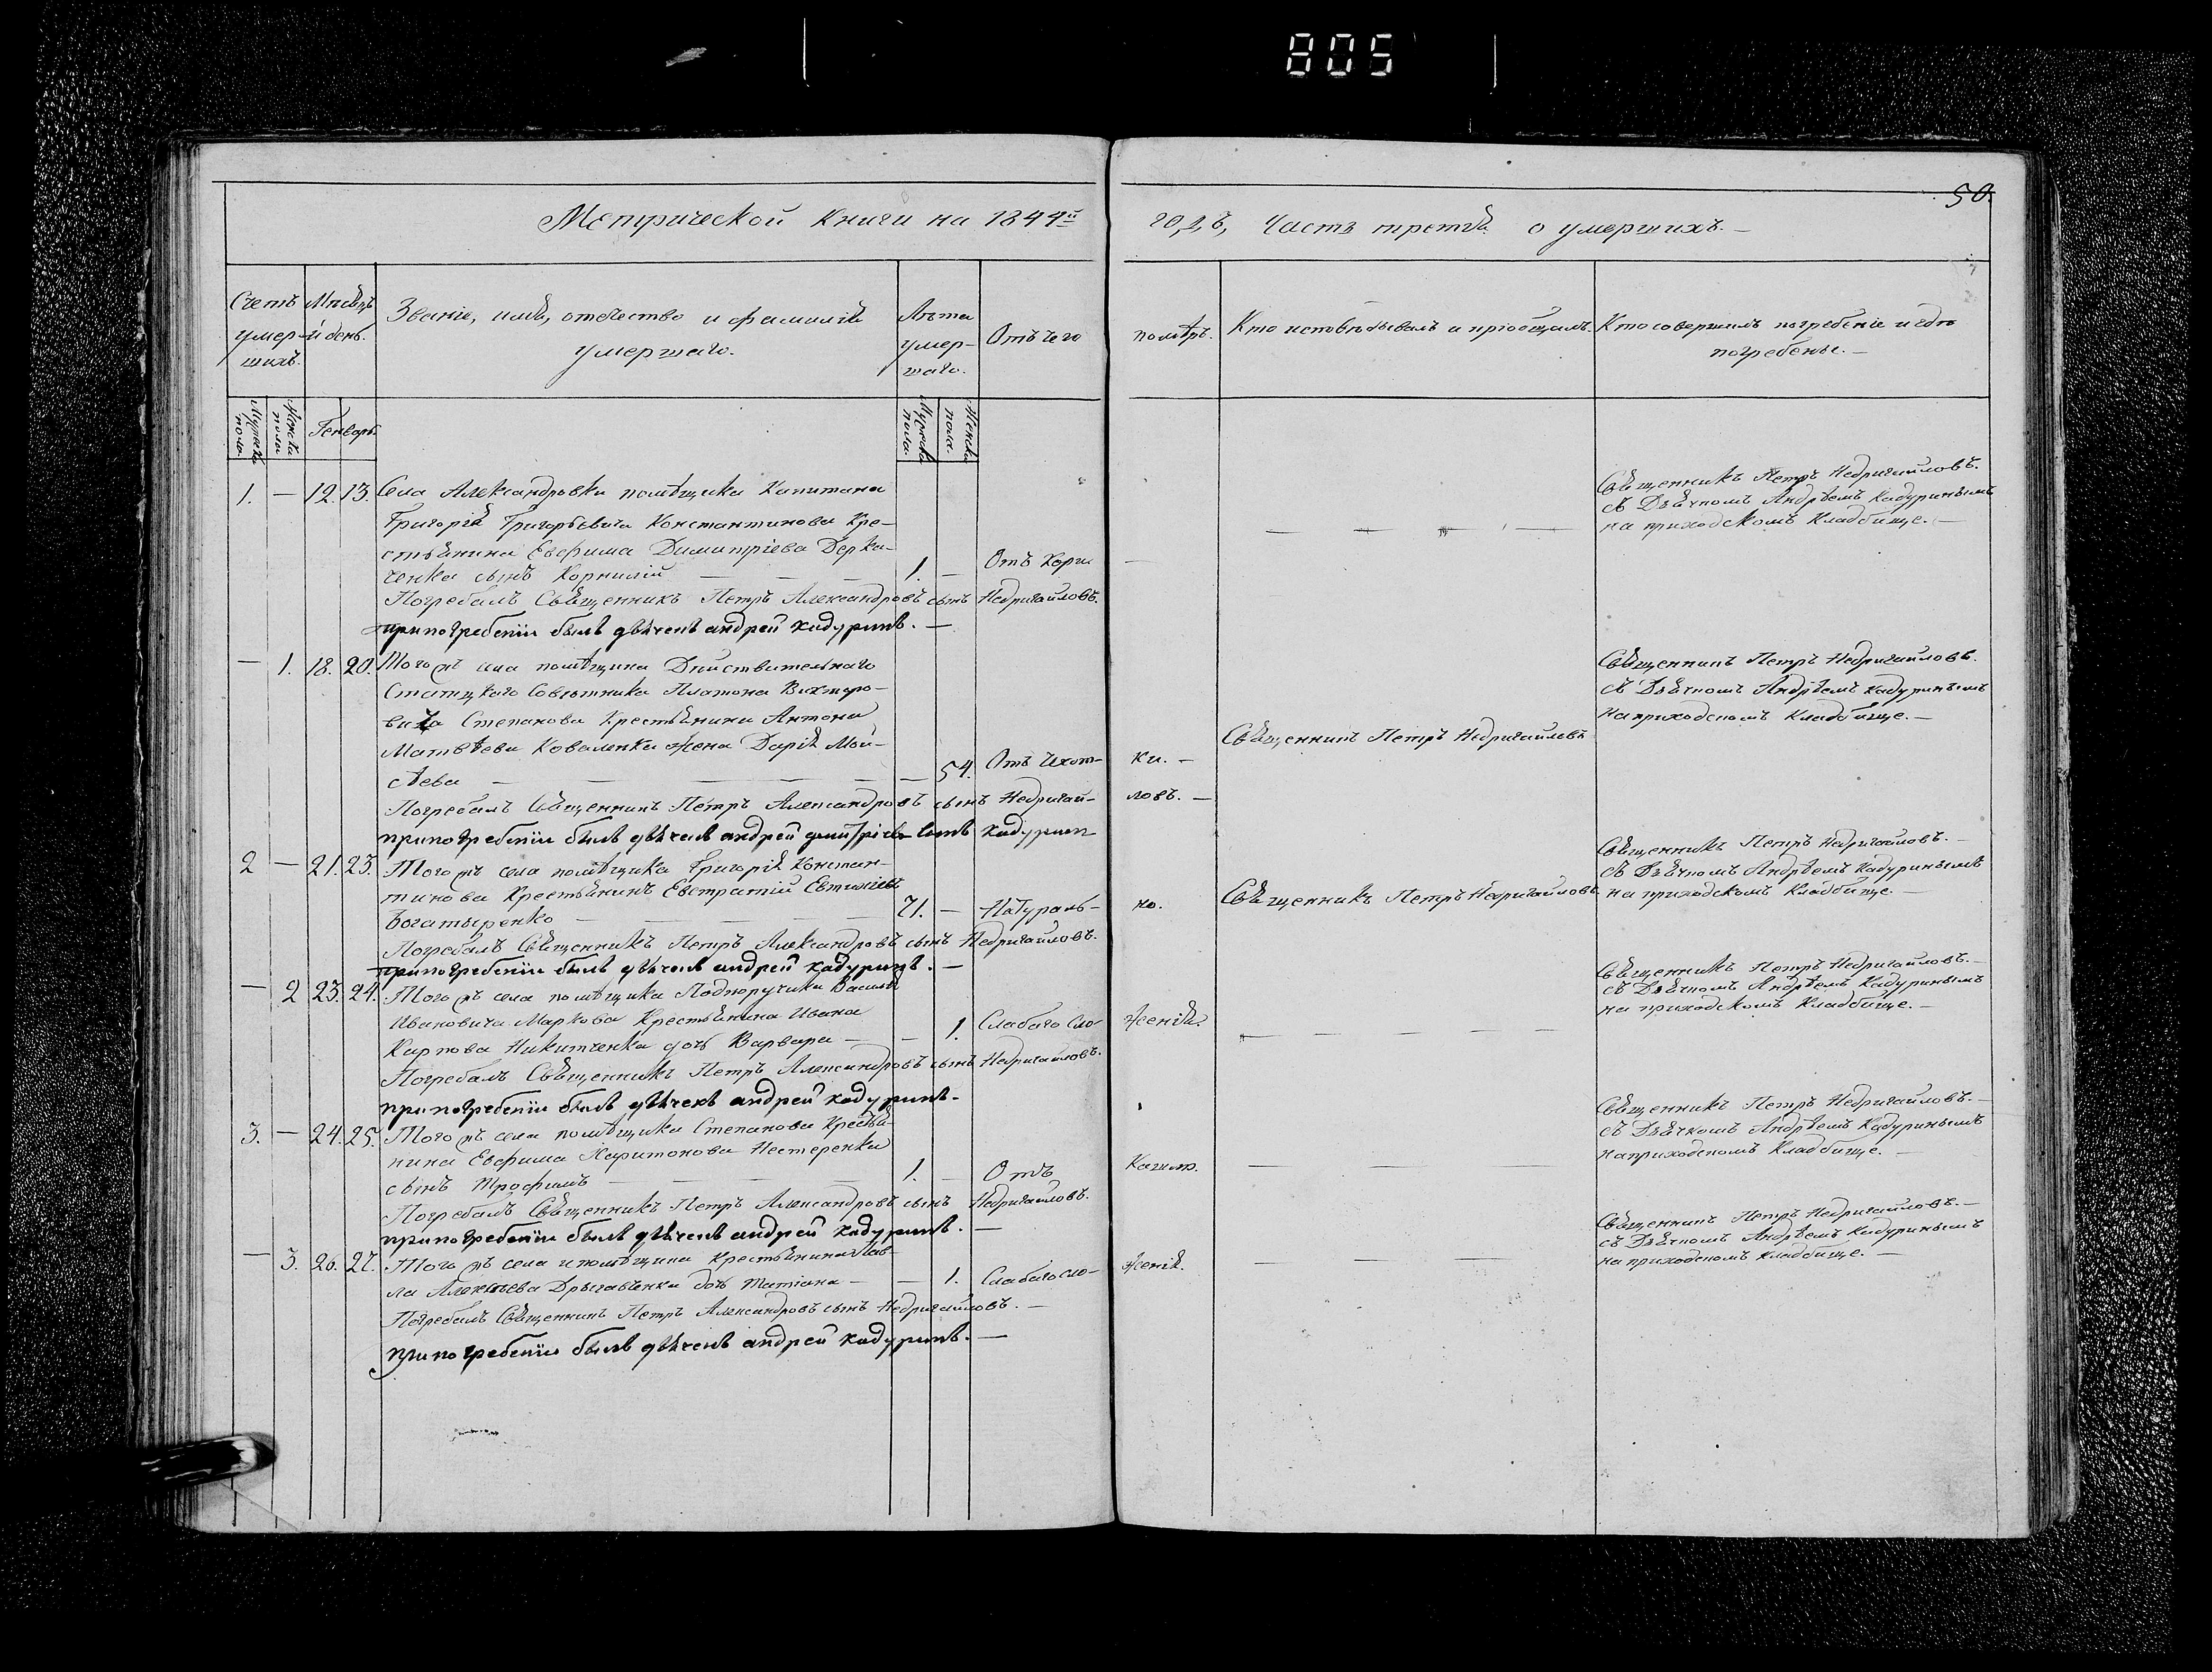 805
50.
Метрической Книги на 1844й годъ, Часть третья о умершихъ. —
Счетъ умер-шихъ.
Мѣсяцъ и день.
Званіе, имя, отечество и фамилія
умершаго.
Лѣта умер-шаго.
Отъ чего помѣръ.
Кто исповѣдывалъ и пріобщалъ.
Кто совершилъ погребеніе и гдѣ
погребены. —
Мужеска пола.
Женска пола
Генварь.
Мужеска пола.
Женска пола.
1. — 12. 13. Села Александровки помѣщика Капитана
Григорія Григорьевича Константинова Кре-
стьянина Евфима Димитріева Дерка-
ченка сынъ Корнилій — — — 1. — Отъ Кори —
Священникъ Петръ Недригайловъ.
съ Дьячкомъ Андрѣемъ Кадуринымъ
на приходскомъ Кладбище. —
Погребалъ Священникъ Петръ Александровъ сынъ Недригайловъ.
при погребеніи былъ дьячекъ андрей кадуринъ. —
— 1. 18. 20. Того жъ села помѣщика Дѣйствительнаго
Статскаго Совѣтника Платона Викторо-
вича Степанова Крестьянина Антона
Матвѣева Коваленка жена Дарія Мой-
сѣева — — — — — 54. Отъ Чехот- ки. —
Священникъ Петръ Недригайловъ
Священникъ Петръ Недригайловъ.
съ Дьячкомъ Андрѣемъ Кадуринымъ
на приходскомъ Кладбище. —
Погребалъ Священникъ Петръ Александровъ сынъ Недригай- ловъ. —
при погребеніи былъ дьячекъ андрей дмитріевъ сынъ кадуринъ
2 — 21. 23. Того жъ села помѣщика Григорія Констан-
тинова Крестьянинъ Евстратій Евтихіевъ
Богатыренко — — — — 71. — Натураль- но.
Священникъ Петръ Недригайловъ.
Священникъ Петръ Недригайловъ. —
съ Дьячкомъ Андрѣемъ Кадуринымъ
на приходскомъ Кладбище. —
Погребалъ Священникъ Петръ Александровъ сынъ Недригайловъ.
при погребеніи былъ дьячекъ андрей кадуринъ. —
— 2 23. 24. Того жъ села помѣщика Подпоручика Василія
Ивановича Маркова Крестьянина Ивана
Карпова Никитченка дочь Варвара — — 1. Слабаго сло- женія.
Священникъ Петръ Недригайловъ. —
съ Дьячкомъ Андрѣемъ Кадуринымъ
на приходскомъ Кладбище. —
Погребалъ Священникъ Петръ Александровъ сынъ Недригайловъ.
при погребеніи былъ дьячекъ андрей кадуринъ.
3. — 24. 25. Того жъ села помѣщика Степанова Крестья-
нина Евфима Харитонова Нестеренка
сынъ Трофимъ — — — 1. — Отъ Кашля.
Священникъ Петръ Недригайловъ. —
съ Дьячкомъ Андрѣемъ Кадуринымъ
на приходскомъ Кладбище. —
Погребалъ Священникъ Петръ Александровъ сынъ Недригайловъ.
при погребеніи былъ дьячекъ андрей кадуринъ. —
— 3. 26. 27. Того жъ села и помѣщика Крестьянина Пав-
ла Алексѣева дочь Татіана — — 1. Слабаго сло- женія.
Священникъ Петръ Недригайловъ. —
съ Дьячкомъ Андрѣемъ Кадуринымъ
на приходскомъ Кладбище. —
Погребалъ Священникъ Петръ Александровъ сынъ Недригайловъ. —
при погребеніи былъ дьячекъ андрей кадуринъ. —